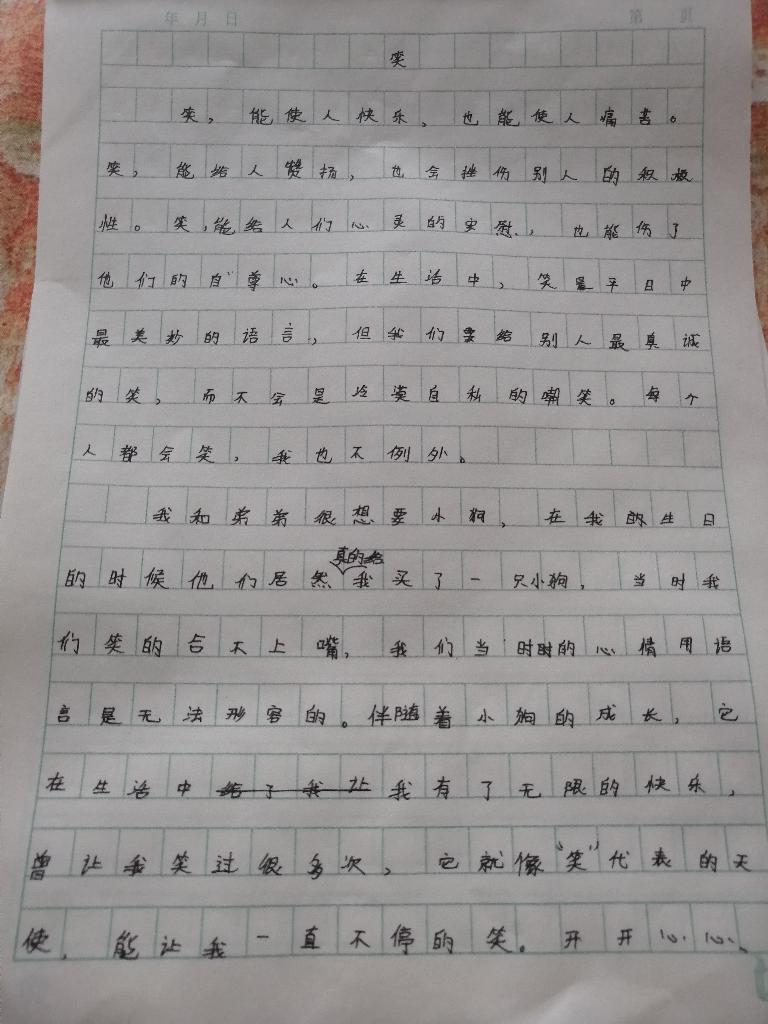 年 月 日 第 页
笑
笑，能使人快乐，也能使人痛苦。
笑，能给人赞扬，也会挫伤别人的积极
性。笑，能给人们心灵的安慰，也能伤了
他们的自尊心。在生活中，笑是平日中
最美妙的语言，但我们要给别人最真诚
的笑，而不会是冷漠自私的嘲笑。每个
人都会笑，我也不例外。
我和弟弟很想要小狗，在我的生日
的时候他们居然真的给我买了一只小狗，当时我
们笑的合不上嘴，我们当时时的心情用语
言是无法形容的。伴随着小狗的成长，它
在生活中给了我让我有了无限的快乐，
曾让我笑过很多次，它就像“笑”代表的天
使，能让我一直不停的笑。开开心心、